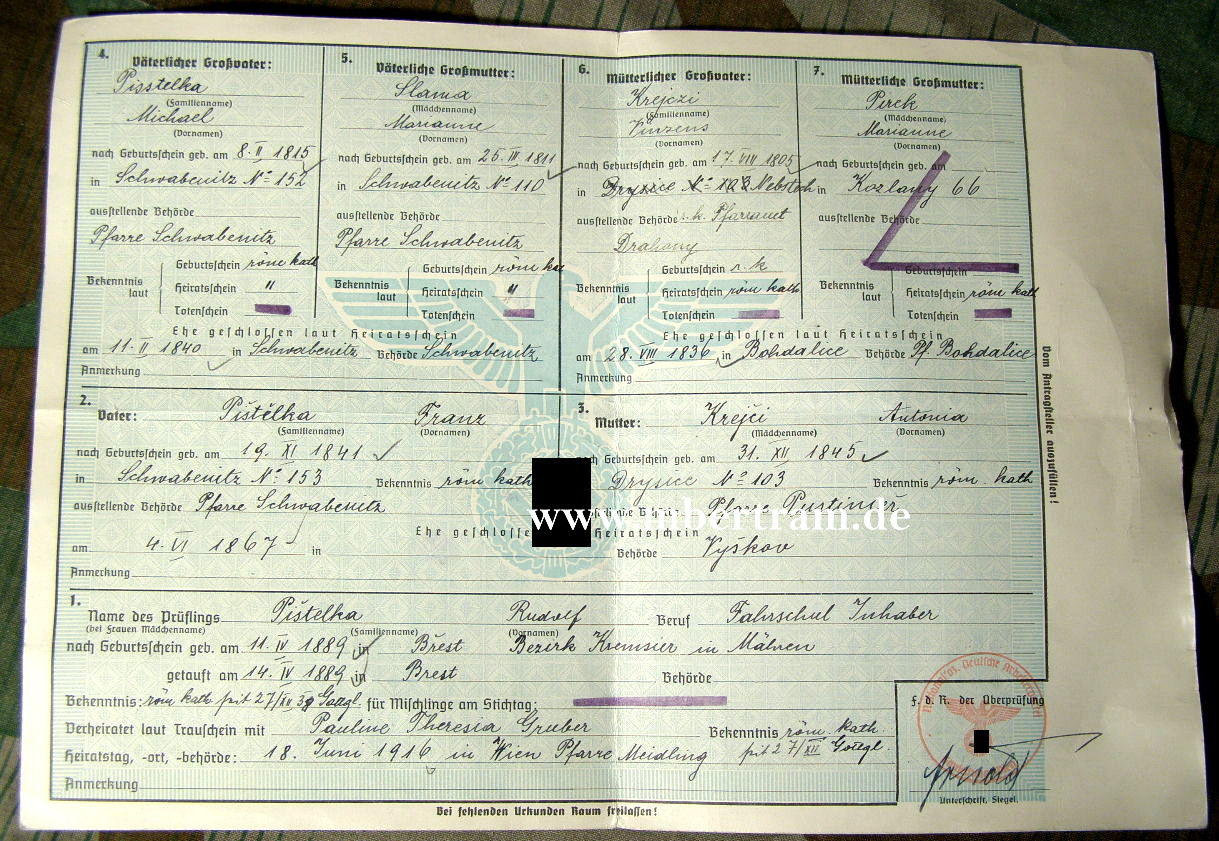 4. Väterlicher Großvater:
Pisstelka
(Familienname)
Michael
(Vornamen)
nach Geburtsschein geb. am 8. II 1815
in Schwabenitz No 152
ausstellende Behörde
Pfarre Schwabenitz
Bekenntnis laut
Geburtsschein röm kath
Heiratsschein "
Totenschein
5. Väterliche Großmutter:
Slama
(Mädchenname)
Marianne
(Vornamen)
nach Geburtsschein geb. am 25. III 1811
in Schwabenitz No 110
ausstellende Behörde
Pfarre Schwabenitz
Bekenntnis laut
Geburtsschein röm ka
Heiratsschein "
Totenschein
Ehe geschlossen laut Heiratsschein
am 11. II 1840 in Schwabenitz Behörde Schwabenitz
Anmerkung
6. Mütterlicher Großvater:
Krejczi
(Familienname)
Vinzens
(Vornamen)
nach Geburtsschein geb. am 17. VIII 1805
in Drysice No 103
ausstellende Behörde r. k. Pfarramt
Drahany
Bekenntnis laut
Geburtsschein r. k
Heiratsschein röm kath
Totenschein
7. Mütterliche Großmutter:
Perek
(Mädchenname)
Marianne
(Vornamen)
nach Geburtsschein geb. am
in Kozlany 66
ausstellende Behörde
Bekenntnis laut
Geburtsschein
Heiratsschein röm kath
Totenschein
Ehe geschlossen laut Heiratsschein
am 28. VIII 1836 in Bohdalice Behörde Pf. Bohdalice
Anmerkung
2. Vater: Pištělka Franz
(Familienname) (Vornamen)
nach Geburtsschein geb. am 19. XI 1841
in Schwabenitz No 153 Bekenntnis röm kath
ausstellende Behörde Pfarre Schwabenitz
3. Mutter: Krejči Antonia
(Mädchenname) (Vornamen)
nach Geburtsschein geb. am 31. XII 1845
Drysice No 103 Bekenntnis röm. kath
Behörde Pfarre Pustiměř
www.mbertram.de
Ehe geschlosse Heiratsschein
am 4. VI 1867 in Behörde Vyškov
Anmerkung
1. Name des Prüflings Pištelka Rudolf Beruf Fahrschul Inhaber
(bei Frauen Mädchenname) (Familienname) (Vornamen)
nach Geburtsschein geb. am 11. IV 1889 in Břest Bezirk Kremsier in Mähren
getauft am 14. IV 1889 in Břest Behörde
Bekenntnis: röm kath seit 27/XII 39 Gottgl. für Mischlinge am Stichtag:
Verheiratet laut Trauschein mit Pauline Theresia Gruber Bekenntnis röm. kath.
Heiratstag, -ort, -behörde: 18. Juni 1916 in Wien Pfarre Meidling seit 27/XII Gottgl.
Anmerkung
Vom Antragsteller auszufüllen!
F. d. R. der Überprüfung
Arnold
Unterschrift, Siegel.
Bei fehlenden Urkunden Raum freilassen!